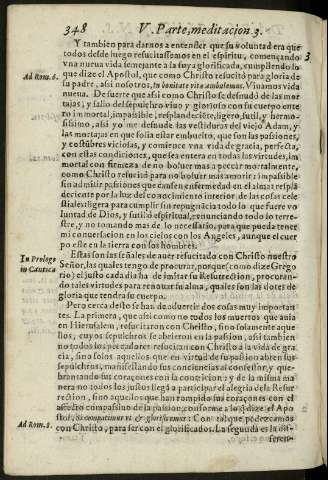 348
V. Parte, meditacion 3.
Y tambien para darnos a entender que su voluntad era que
todos desde luego resucitassemos en el espiritu, comenzando
vna nueva vida semejante a la suya glorificada, cumpliendo lo
Ad Rom. 6.
que dize el Apostol, que como Christo resucitò para gloria de
su padre, assi nosotros, In novitate vitæ ambulemus. Vivamos vida
nueva. De suerte que assi como Christo se desnudò de las mor
tajas, y salio del sepulchro vivo y glorioso con su cuerpo ente
ro immortal, impassible, resplandeciẽte, ligero, sutil, y hermo-
sissimo, assi yo me desnude las vestiduras del viejo Adam, y
las mortajas en que solia estar embuelto, que son las passiones,
y costũbres viciosas, y comience vna vida de gracia, perfecta,
con estas condiciones, que sea entera en todas las virtudes, im
mortal con firmeza de no bolver mas a peccar mortalmente,
como Christo resucitò para no bolver mas a morir: impassible
sin admitir passiones que causen enfermedad en el alma: respla
deciente por la luz del conocimiento interior de las cosas cele
stiales: ligera para cumplir sin repugnãcia todo lo que fuere vo
luntad de Dios, y sutil ò espiritual, renunciando todo lo terre-
stre, y no tomando mas de lo necessario, para que pueda tener
mi conversacion en los cielos con los Angeles, aunque el cuer
po este en la tierra con los hombres.
In Prologo
in Cantica
Estas son las señales de aver resucitado con Christo nuestro
Señor, las quales tengo de procurar, porque (como dize Grego
rio) el justo cada dia ha de imitar su Resurreccion, procuran-
do tales virtudes para renovar su alma, quales son los dotes de
gloria que tendra su cuerpo.
Pero cerca desto se han de discurrir dos cosas muy important
tes. La primera, que assi como no todos los muertos que avia
en Hierusalem, resucitaron con Christo, sino solamente aque
llos, cuyos sepulchros se abrieron en la passion, assi tambien
no todos los peccadores resucitan con Christo à la vida de gra
cia, sino solos aquellos que en virtud de su passion abren sus
sepulchros, manifestando sus conciencias al confessor, y que-
brantando sus coraçones con la contricion: y de la misma ma
nera no todos los justos llegã a participar el alegria de la Resur
rection, sino aquellos que han rompido sus coraçones con el
afecto compassivo de la passion; conforme a lo q̃ dize el Apo
Ad Rom. 8.
stol, Si compatimur vt & glorificemur: Con tal que padezcamos
con Christo, para ser con el glorificados. La segunda es la dif-
feren-